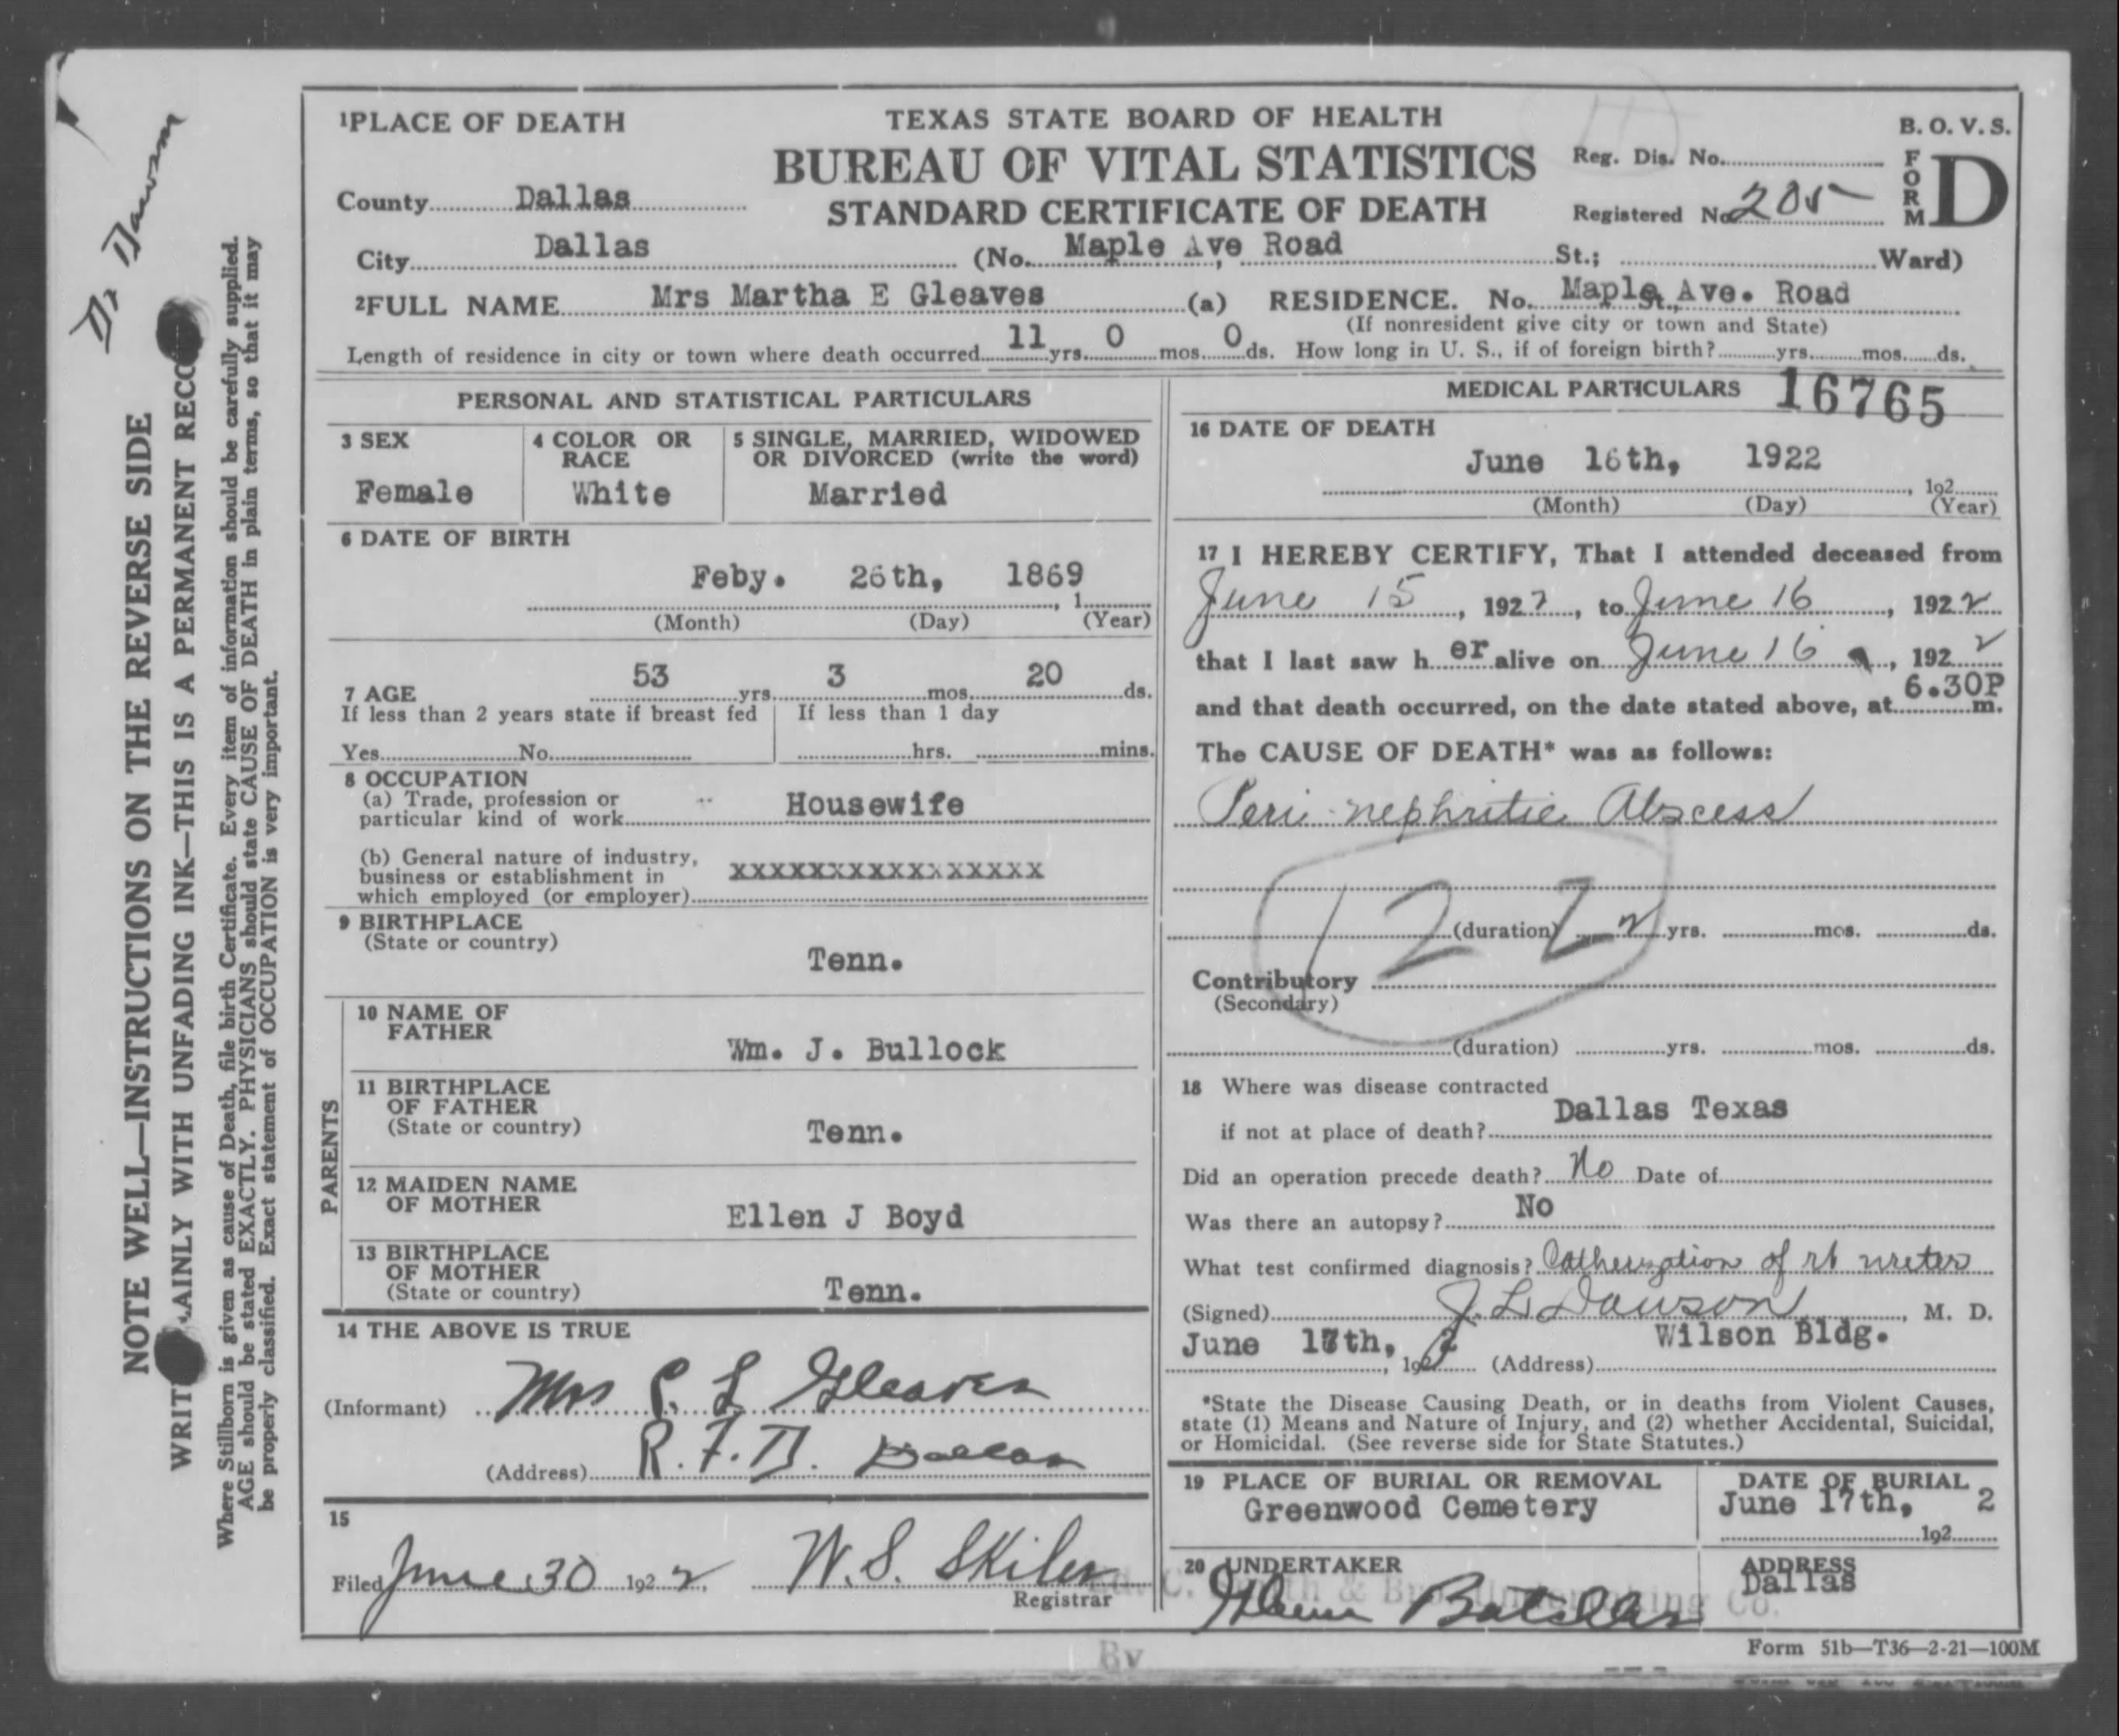 Dr Dawson
NOTE WELL—INSTRUCTIONS ON THE REVERSE SIDE
WRIT AINLY WITH UNFADING INK—THIS IS A PERMANENT RECO
Where Stillborn is given as cause of Death, file birth Certificate. Every item of information should be carefully supplied.
AGE should be stated EXACTLY. PHYSICIANS should state CAUSE OF DEATH in plain terms, so that it may
be properly classified. Exact statement of OCCUPATION is very important.
1PLACE OF DEATH
TEXAS STATE BOARD OF HEALTH
BUREAU OF VITAL STATISTICS
STANDARD CERTIFICATE OF DEATH
Reg. Dis. No.
Registered No. 205
B. O. V. S.
FORM D
County Dallas
City Dallas (No. Maple Ave Road St.; Ward)
2FULL NAME Mrs Martha E Gleaves (a) RESIDENCE. No. Maple Ave. Road St.,
(If nonresident give city or town and State)
Length of residence in city or town where death occurred 11 yrs. 0 mos. 0 ds. How long in U. S., if of foreign birth? yrs. mos. ds.
PERSONAL AND STATISTICAL PARTICULARS
3 SEX
Female
4 COLOR OR RACE
White
5 SINGLE, MARRIED, WIDOWED
OR DIVORCED (write the word)
Married
6 DATE OF BIRTH
Feby. 26th, 1869
, 1
(Month) (Day) (Year)
7 AGE 53 yrs. 3 mos. 20 ds.
If less than 2 years state if breast fed If less than 1 day
Yes No hrs. mins.
8 OCCUPATION
(a) Trade, profession or
particular kind of work Housewife
(b) General nature of industry,
business or establishment in
which employed (or employer) XXXXXXXXXXXXXXXX
9 BIRTHPLACE
(State or country)
Tenn.
PARENTS
10 NAME OF
FATHER
Wm. J. Bullock
11 BIRTHPLACE
OF FATHER
(State or country) Tenn.
12 MAIDEN NAME
OF MOTHER
Ellen J Boyd
13 BIRTHPLACE
OF MOTHER
(State or country) Tenn.
14 THE ABOVE IS TRUE
(Informant) Mrs C. L Gleaves
(Address) R. F. D. Dallas
15
Filed June 30 1922, W. S. Skiles
Registrar
MEDICAL PARTICULARS 16765
16 DATE OF DEATH
June 16th, 1922
, 192
(Month) (Day) (Year)
17 I HEREBY CERTIFY, That I attended deceased from
June 15, 1922, to June 16, 1922
that I last saw her alive on June 16, 1922
and that death occurred, on the date stated above, at 6.30P m.
The CAUSE OF DEATH* was as follows:
Peri-nephritic Abscess
122
(duration) 2 yrs. mos. ds.
Contributory
(Secondary)
(duration) yrs. mos. ds.
18 Where was disease contracted
if not at place of death? Dallas Texas
Did an operation precede death? No Date of
Was there an autopsy? No
What test confirmed diagnosis? Catherization of rt ureter
(Signed) J. L. Dawson, M. D.
June 17th, 192 2 (Address) Wilson Bldg.
*State the Disease Causing Death, or in deaths from Violent Causes,
state (1) Means and Nature of Injury, and (2) whether Accidental, Suicidal,
or Homicidal. (See reverse side for State Statutes.)
19 PLACE OF BURIAL OR REMOVAL
Greenwood Cemetery
DATE OF BURIAL
June 17th, 2
192
20 UNDERTAKER
ADDRESS
Dallas
Ed. C. Smith & Bro Undertaking Co.
By
Form 51b—T36—2-21—100M